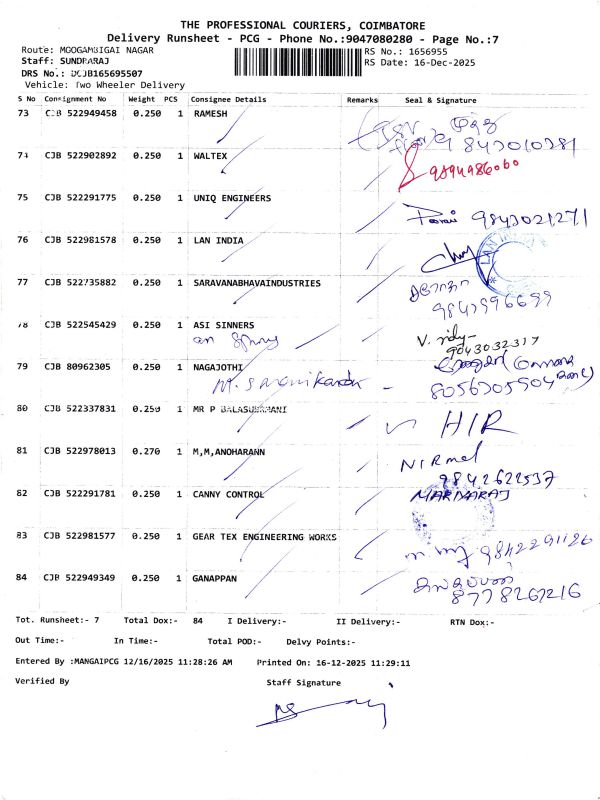 THE PROFESSIONAL COURIERS, COIMBATORE
Delivery Runsheet - PCG - Phone No.:9047080280 - Page No.:7
Route: MOOGAMBIGAI NAGAR RS No.: 1656955
Staff: SUNDRARAJ RS Date: 16-Dec-2025
DRS No.: DCJB165695507
Vehicle: Two Wheeler Delivery
S No Consignment No Weight PCS Consignee Details Remarks Seal & Signature
73 CJB 522949458 0.250 1 RAMESH
74 CJB 522902892 0.250 1 WALTEX 9894986060
75 CJB 522291775 0.250 1 UNIQ ENGINEERS 9843021271
76 CJB 522981578 0.250 1 LAN INDIA
77 CJB 522735882 0.250 1 SARAVANABHAVAINDUSTRIES
78 CJB 522545429 0.250 1 ASI SINNERS
9043032317
79 CJB 80962305 0.250 1 NAGAJOTHI
M. Sasikandan 8056705504
80 CJB 522337831 0.250 1 MR P BALASUBRMANI HIR
81 CJB 522978013 0.270 1 M,M,ANOHARANN NIRmal
9842622537
82 CJB 522291781 0.250 1 CANNY CONTROL MARIARAJ
83 CJB 522981577 0.250 1 GEAR TEX ENGINEERING WORKS 9842291126
84 CJB 522949349 0.250 1 GANAPPAN
8778267216
Tot. Runsheet:- 7 Total Dox:- 84 I Delivery:- II Delivery:- RTN Dox:-
Out Time:- In Time:- Total POD:- Delvy Points:-
Entered By :MANGAIPCG 12/16/2025 11:28:26 AM Printed On: 16-12-2025 11:29:11
Verified By Staff Signature